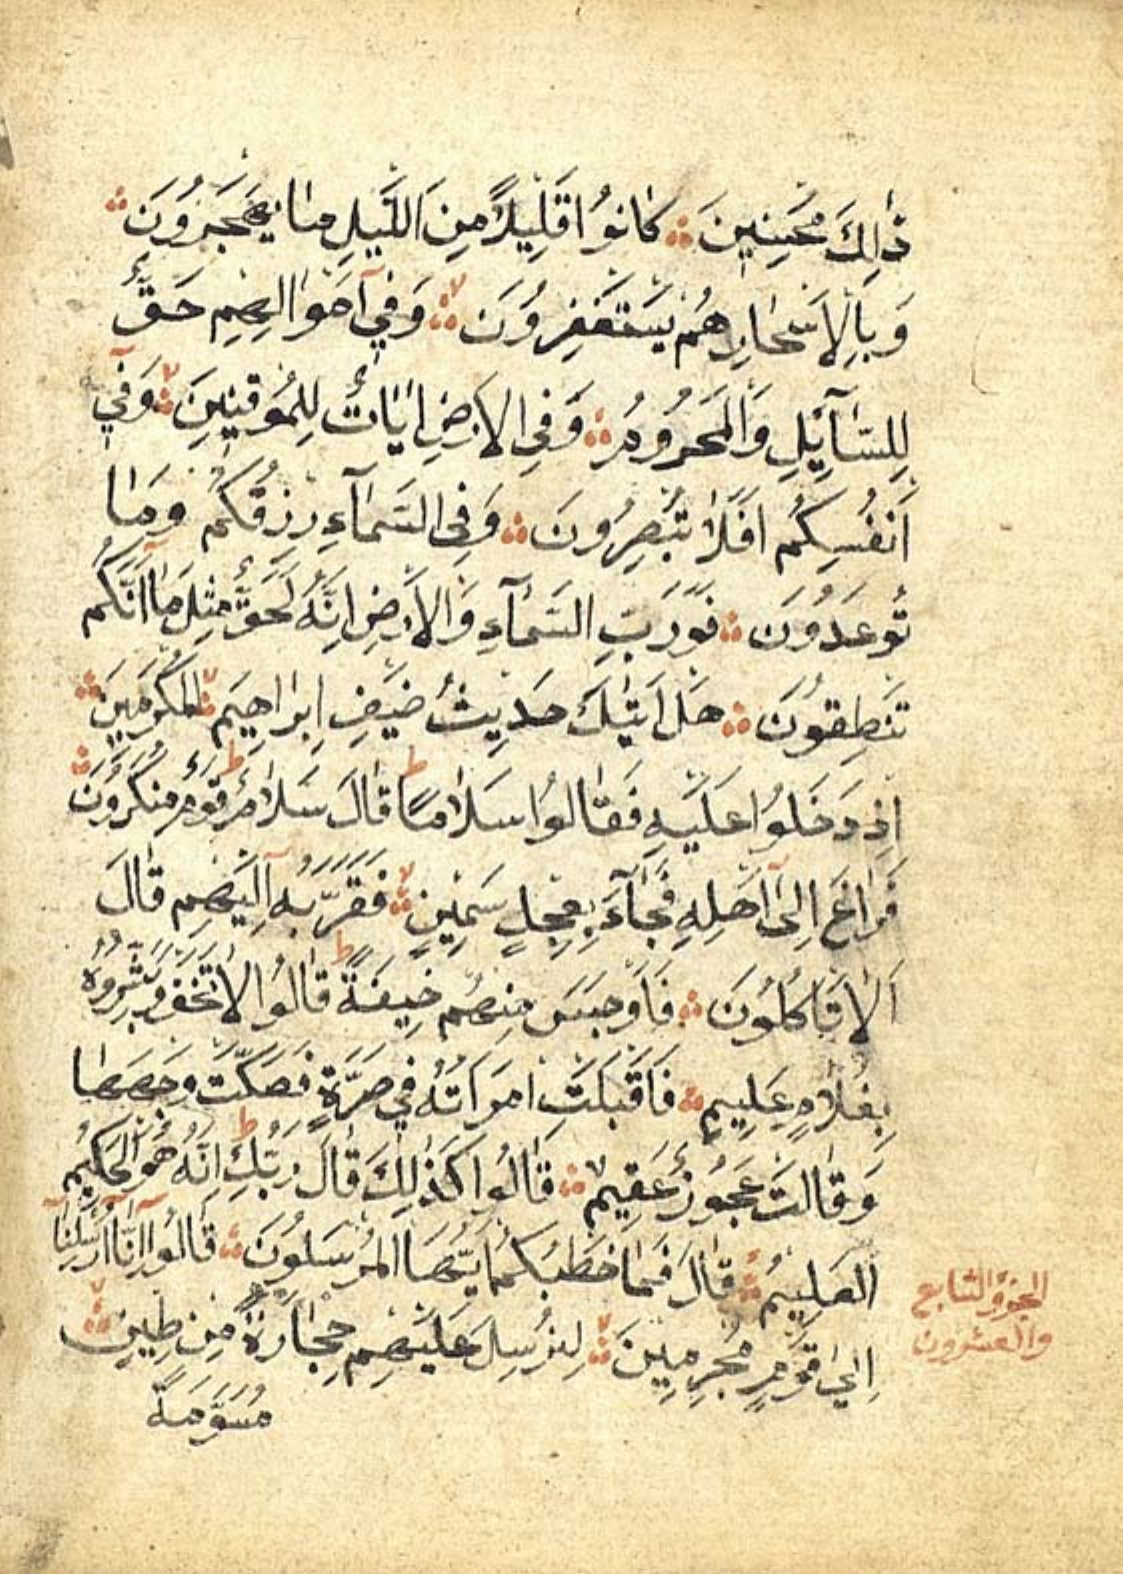 ذٰلِكَ مُحْسِنِينَ كَانُوا قَلِيلًا مِنَ اللَّيْلِ مَا يَهْجَعُونَ
وَبِالْاَسْحَارِ هُمْ يَسْتَغْفِرُونَ وَفِي اَمْوَالِهِمْ حَقٌّ
لِلسَّآئِلِ وَالْمَحْرُومِ وَفِي الْاَرْضِ اٰيَاتٌ لِلْمُوقِنِينَ وَفِي
اَنْفُسِكُمْ اَفَلَا تُبْصِرُونَ وَفِي السَّمَآءِ رِزْقُكُمْ وَمَا
تُوعَدُونَ فَوَرَبِّ السَّمَآءِ وَالْاَرْضِ اِنَّهُ لَحَقٌّ مِثْلَ مَا اَنَّكُمْ
تَنْطِقُونَ هَلْ اَتٰيكَ حَدِيثُ ضَيْفِ اِبْرَاهِيمَ الْمُكْرَمِينَ
اِذْ دَخَلُوا عَلَيْهِ فَقَالُوا سَلَامًا ط قَالَ سَلَامٌ ط قَوْمٌ مُنْكَرُونَ
فَرَاغَ اِلٰى اَهْلِهِ فَجَآءَ بِعِجْلٍ سَمِينٍ فَقَرَّبَهُ اِلَيْهِمْ قَالَ
اَلَا تَاْكُلُونَ فَاَوْجَسَ مِنْهُمْ خِيفَةً ط قَالُوا لَا تَخَفْ وَبَشَّرُوهُ
بِغُلَامٍ عَلِيمٍ فَاَقْبَلَتِ امْرَاَتُهُ فِي صَرَّةٍ فَصَكَّتْ وَجْهَهَا
وَقَالَتْ عَجُوزٌ عَقِيمٌ قَالُوا كَذٰلِكِ قَالَ رَبُّكِ ط اِنَّهُ هُوَ الْحَكِيمُ
الْعَلِيمُ قَالَ فَمَا خَطْبُكُمْ اَيُّهَا الْمُرْسَلُونَ قَالُوا اِنَّا اُرْسِلْنَا
اِلٰى قَوْمٍ مُجْرِمِينَ لِنُرْسِلَ عَلَيْهِمْ حِجَارَةً مِنْ طِينٍ
مُسَوَّمَةً
الجزؤ السابع
والعشرون